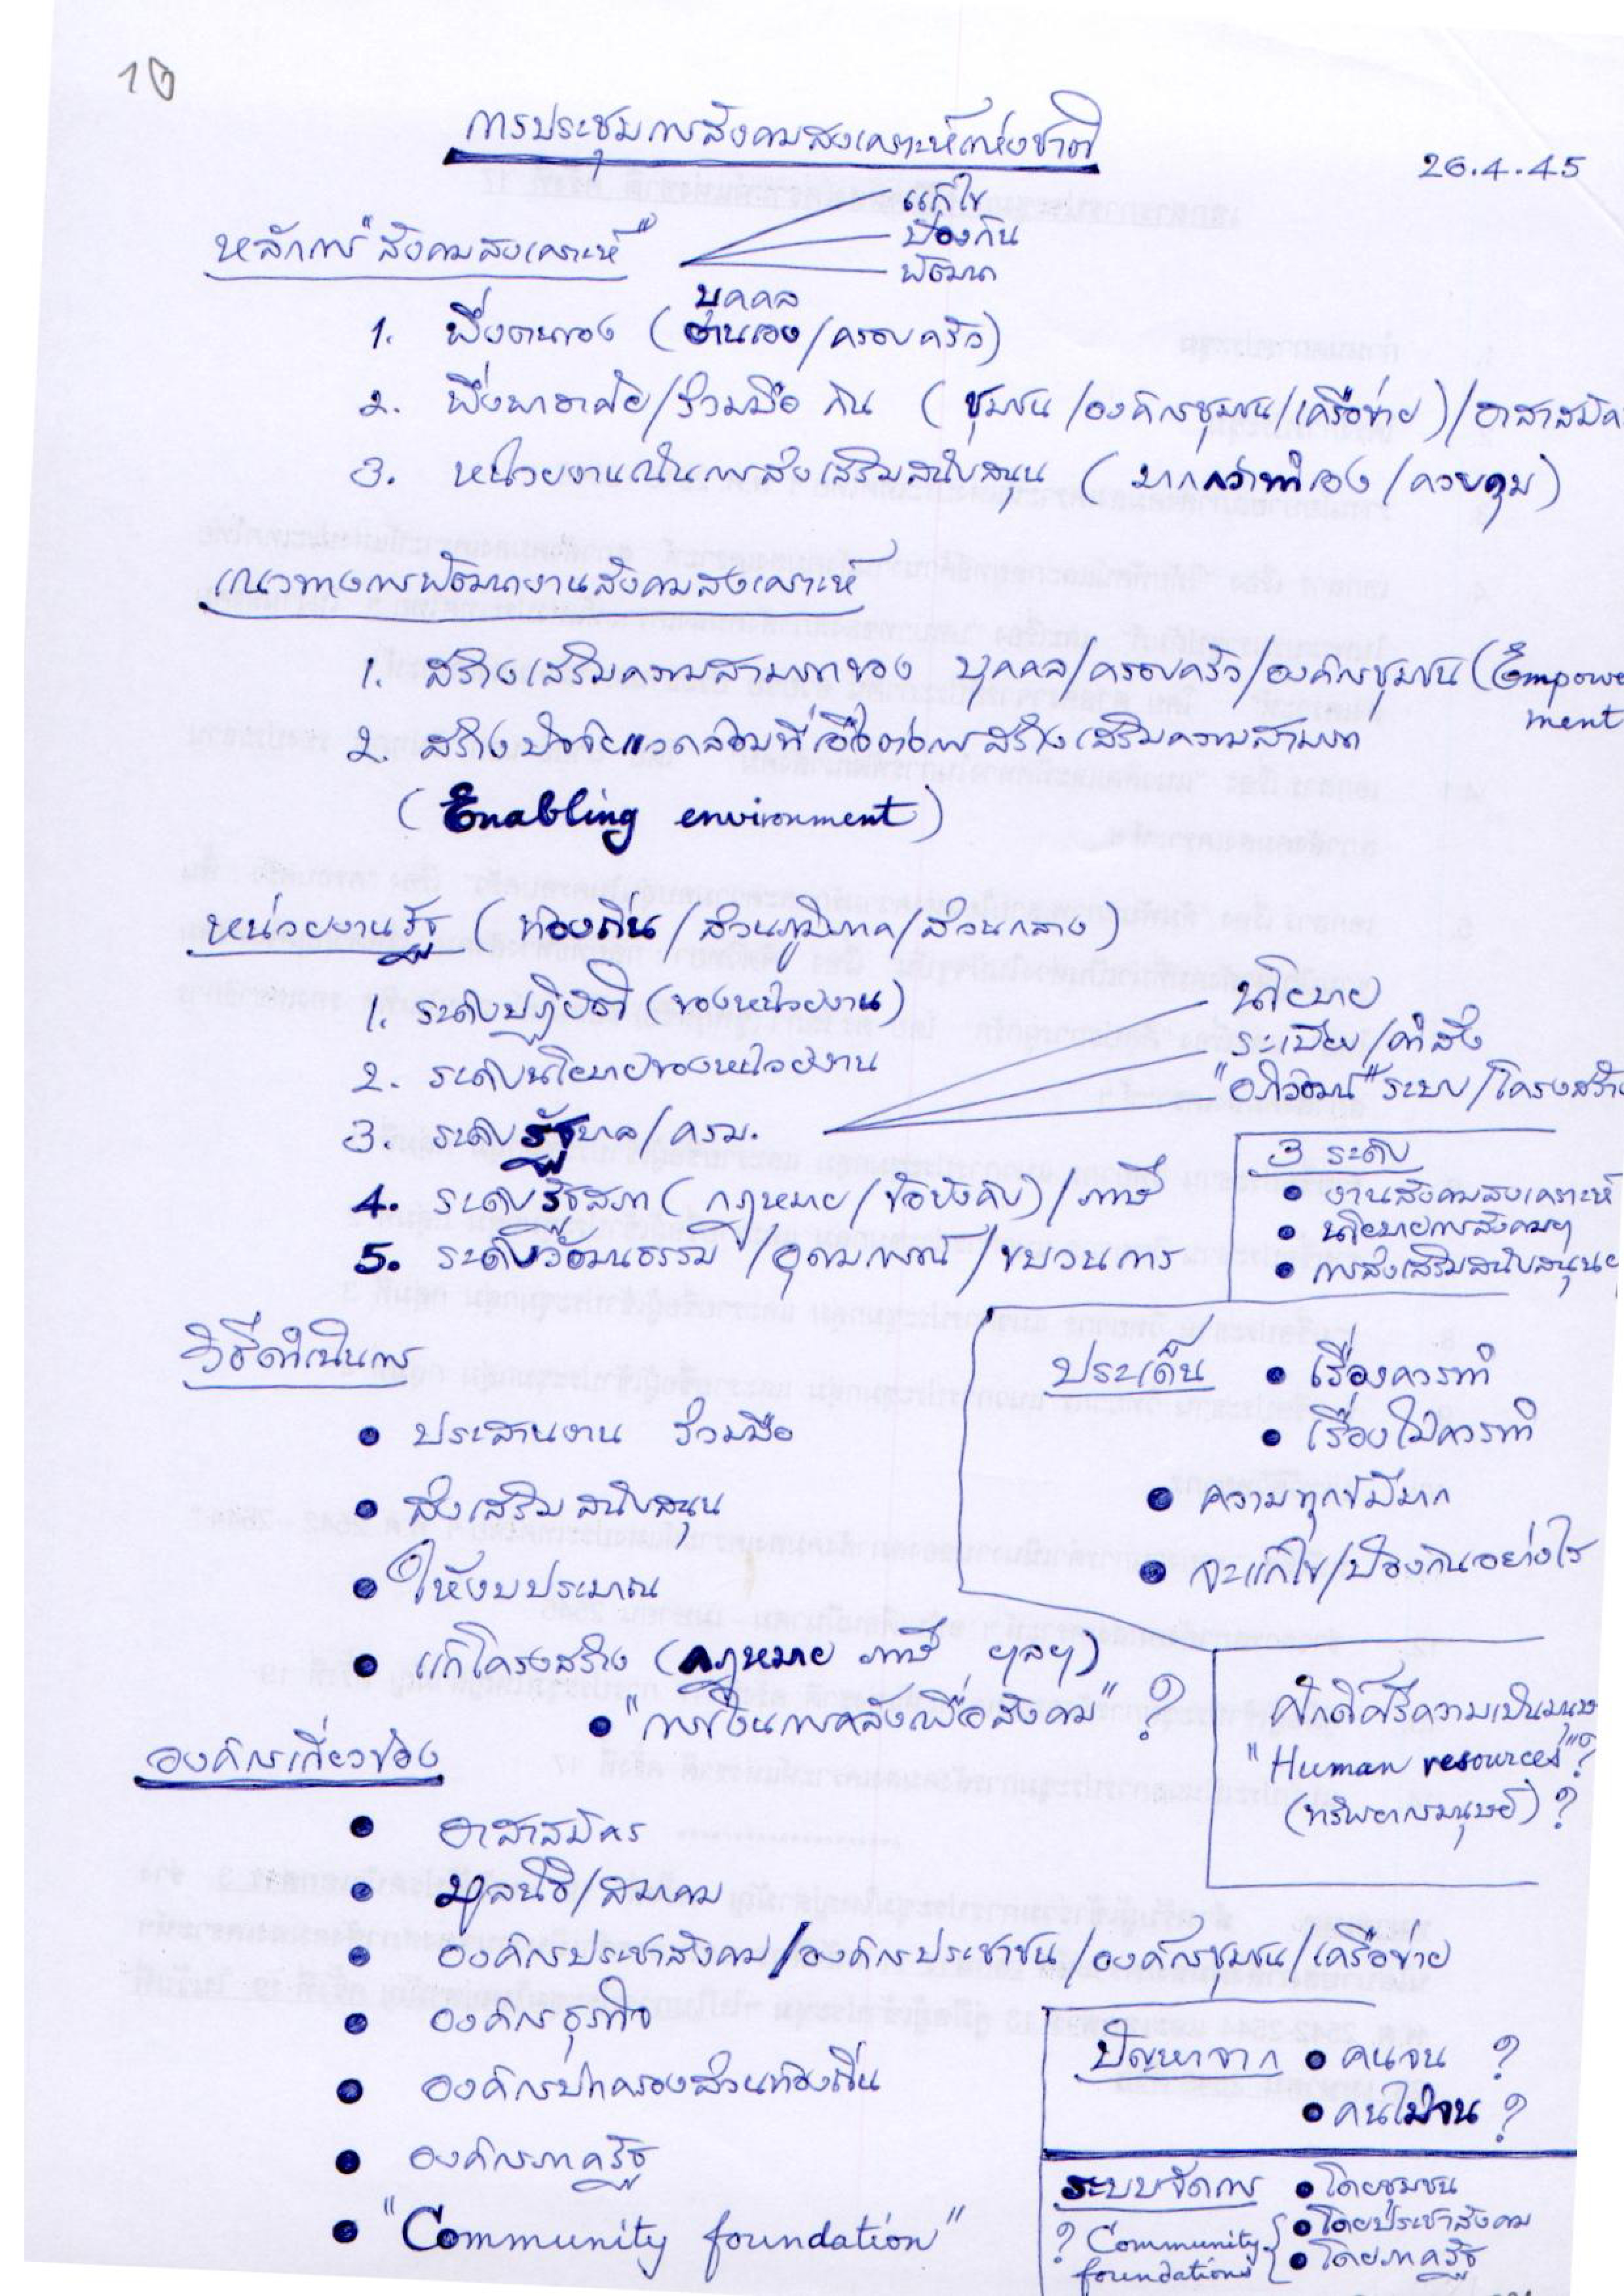 10
การประชุมการสังคมสงเคราะห์แห่งชาติ
26.4.45
หลักการ "สังคมสงเคราะห์"
แก้ไข
ป้องกัน
พัฒนา
บุคคล
1. พึ่งตนเอง (ตนเอง/ครอบครัว)
2. พึ่งพาอาศัย/ร่วมมือ กัน (ชุมชน/องค์กรชุมชน/เครือข่าย)/อาสาสมัค
3. หน่วยงานเน้นการส่งเสริมสนับสนุน (มากกว่าทำเอง/ควบคุม)
แนวทางการพัฒนางานสังคมสงเคราะห์
1. สร้างเสริมความสามารถของ บุคคล/ครอบครัว/องค์กรชุมชน (Empower
ment
2. สร้างปัจจัยแวดล้อมที่เอื้อต่อการสร้างเสริมความสามารถ
(Enabling environment)
หน่วยงานรัฐ (ท้องถิ่น/ส่วนภูมิภาค/ส่วนกลาง)
1. ระดับปฏิบัติ (ของหน่วยงาน)
2. ระดับนโยบายของหน่วยงาน
3. ระดับรัฐบาล/ครม.
นโยบาย
ระเบียบ/คำสั่ง
"อภิวัฒน์" ระบบ/โครงสร้าง
4. ระดับรัฐสภา (กฎหมาย/ข้อบังคับ)/ภาษี
5. ระดับวัฒนธรรม/อุดมการณ์/ขบวนการ
3 ระดับ
• งานสังคมสงเคราะห์
• นโยบายการสังคมฯ
• การส่งเสริมสนับสนุนฯ
วิธีดำเนินการ
• ประสานงาน ร่วมมือ
• ส่งเสริม สนับสนุน
• ให้งบประมาณ
• แก้โครงสร้าง (กฎหมาย ภาษี ฯลฯ)
• "การเงินการคลังเพื่อสังคม" ?
ประเด็น • เรื่องควรทำ
• เรื่องไม่ควรทำ
• ความทุกข์มีมาก
• จะแก้ไข/ป้องกันอย่างไร
ศักดิ์ศรีความเป็นมนุษ
"Human resources" ?
(ทรัพยากรมนุษย์) ?
องค์กรเกี่ยวข้อง
• อาสาสมัคร
• มูลนิธิ/สมาคม
• องค์กรประชาสังคม/องค์กรประชาชน/องค์กรชุมชน/เครือข่าย
• องค์กรธุรกิจ
• องค์กรปกครองส่วนท้องถิ่น
• องค์กรภาครัฐ
• "Community foundation"
ปัญหาจาก • คนจน ?
• คนไม่จน ?
ระบบจัดการ • โดยชุมชน
• โดยประชาสังคม
• โดยภาครัฐ
? Community
foundations